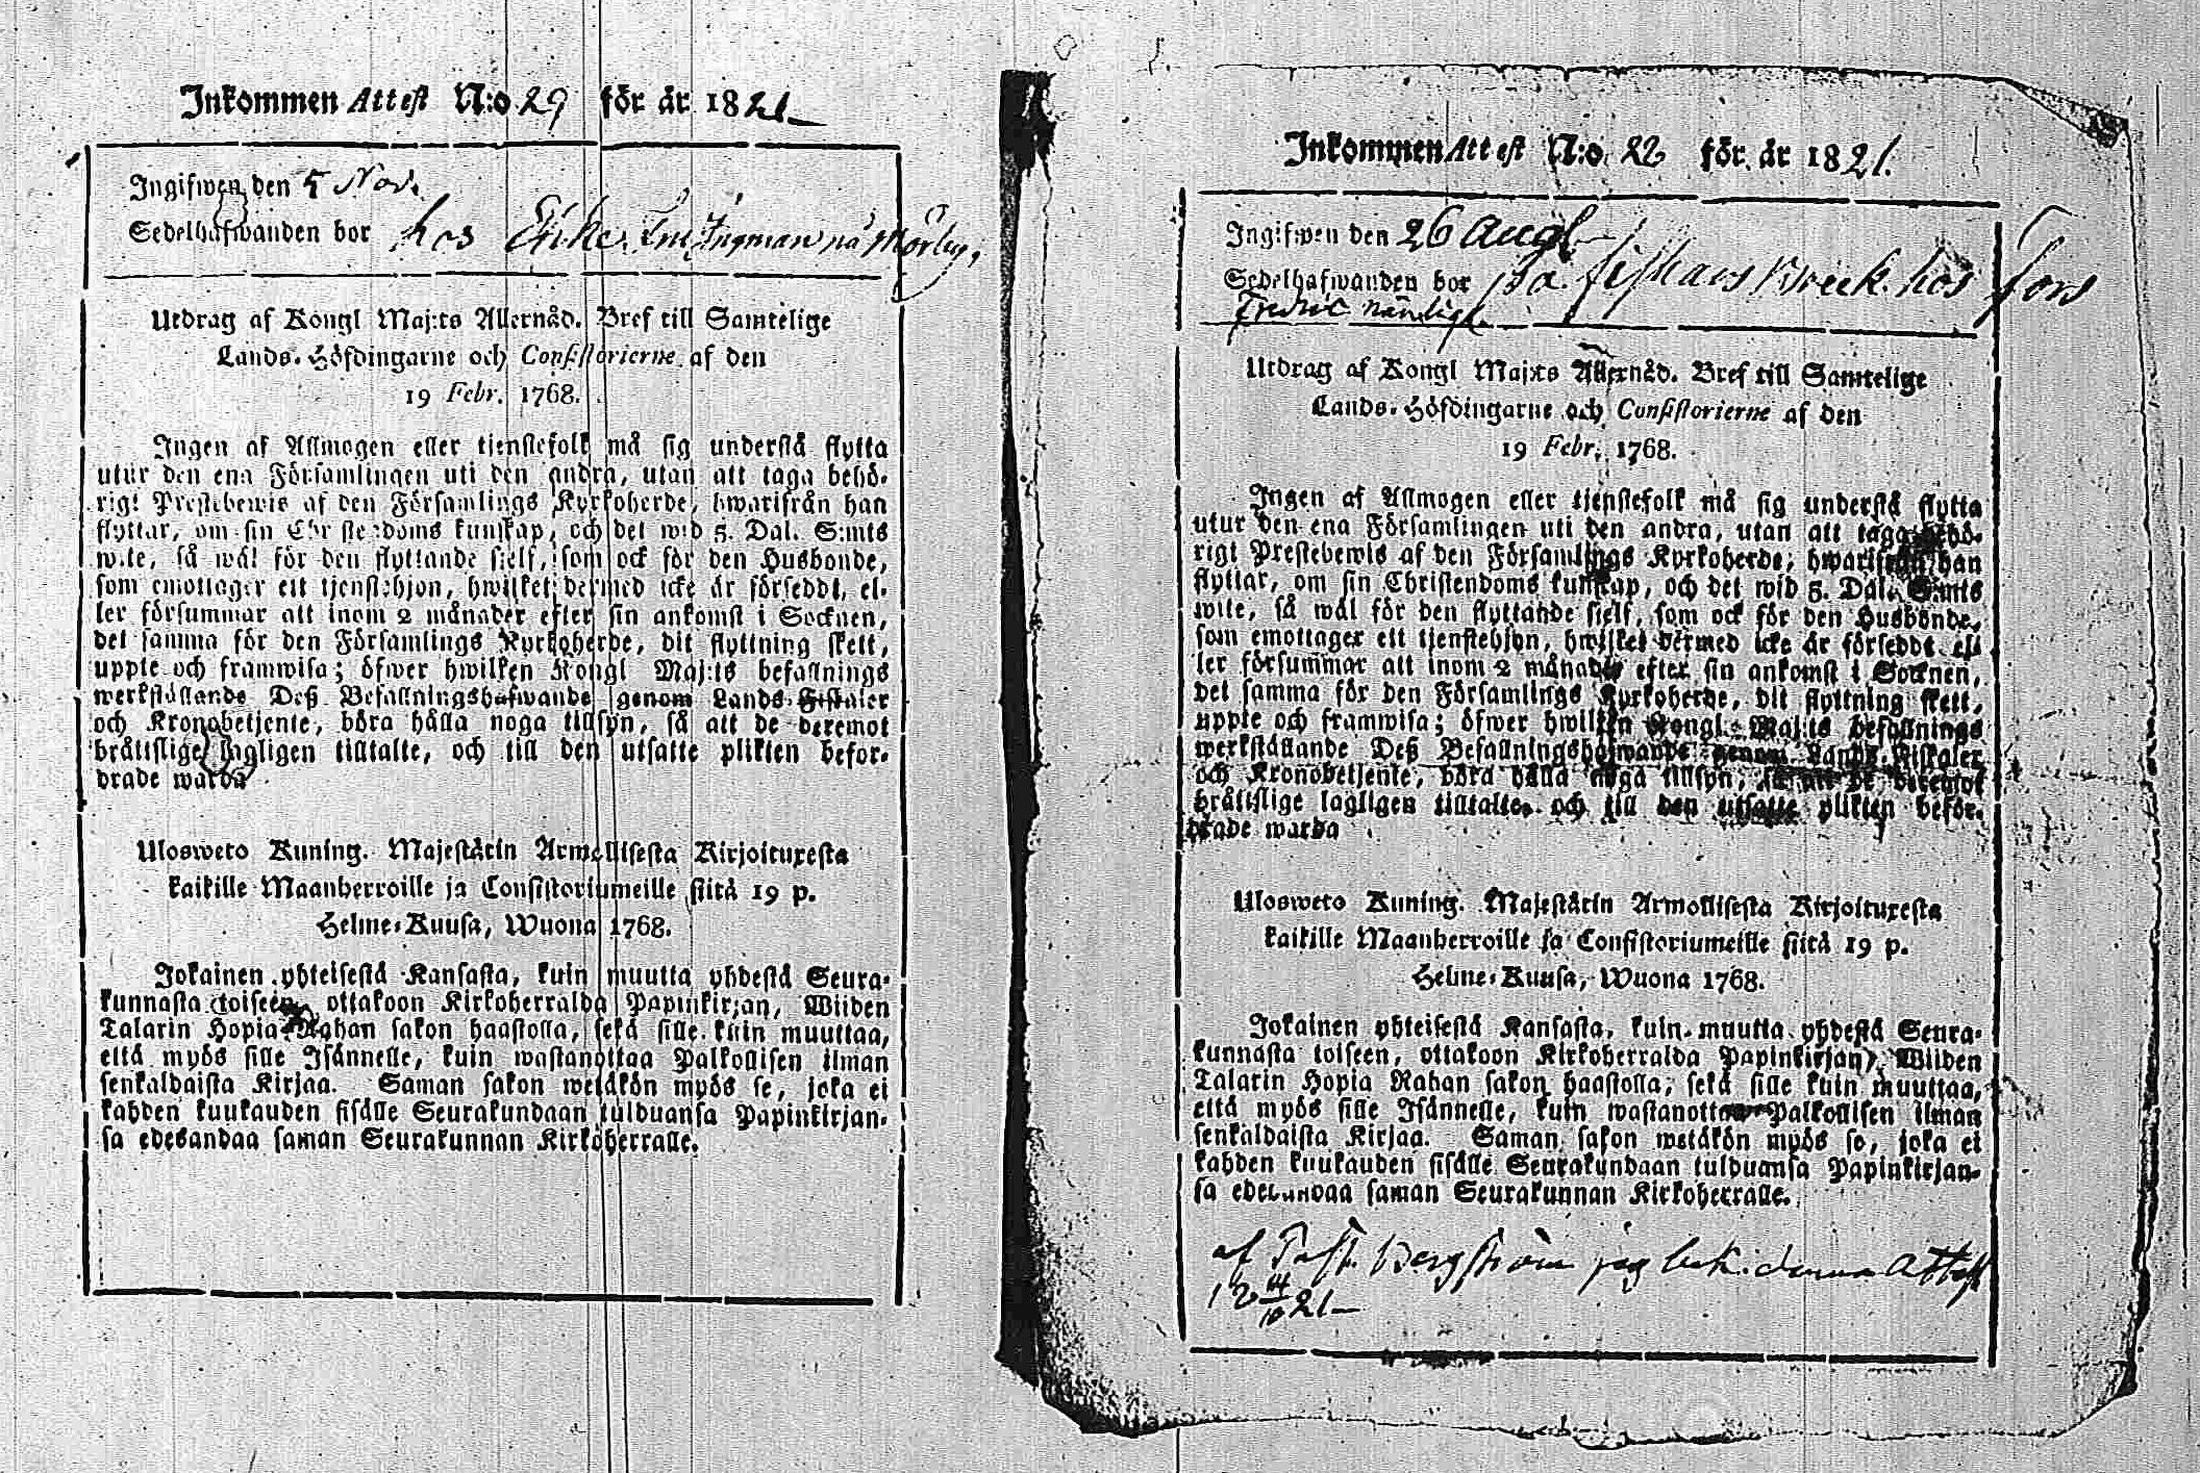 Inkommen Attest N:o 29 för år 1821
Ingifwen den 5 Nov.
Sedelhafwanden bor hos Enke Ingman
Utdrag af Kongl Maj:ts Allernåd. Bref till Samtelige
Lands-Höfdingarne och Consistorierne af den
19 Febr. 1768.
Ingen af Allmogen eller tjenstefolk må sig understå flytta
utur den ena Församlingen uti den andra, utan att taga behö-
rigt Prestebewis af den Församlings Kyrkoherde, hwarifrån han
flyttar, om sin Christendoms kunskap, och det wid 5. Dal. S:mts
wite, så wäl för den flyttande sjelf, som ock för den Husbonde,
som emottager ett tjenstehjon, hwilket dermed icke är förseddt, el-
ler försummar att inom 2 månader efter sin ankomst i Socknen,
det samma för den Församlings Kyrkoherde, dit flyttning skett,
uppte och framwisa; öfwer hwilken Kongl Maj:ts befallnings
werkställande Deß Befallningshafwande genom Lands-Fiskaler
och Kronobetjente, böra hålla noga tillsyn, så att de deremot
bråttslige lagligen tilltalte, och till den utsatte plikten befor-
drade warda
Ulosweto Kuning. Majestätin Armollisesta Kirjoituxesta
kaikille Maanherroille ja Consistoriumeille siitä 19 p.
Helme-Kuusa, Wuona 1768.
Jokainen yhteisestä Kansasta, kuin muutta yhdestä Seura-
kunnasta toiseen, ottakoon Kirkoherralda Papinkirjan, Wiiden
Talarin Hopia Rahan sakon haastolla, sekä sille kuin muuttaa,
että myös sille Isännelle, kuin wastanottaa Palkollisen ilman
senkaldaista Kirjaa. Saman sakon wetäkön myös se, joka ei
kahden kuukauden sisälle Seurakundaan tulduansa Papinkirjan-
sa edesandaa saman Seurakunnan Kirkoherralle.
Inkommen Attest N:o 22 för år 1821.
Ingifwen den 26 Augl
Sedelhafwanden bor på hos Fors
Fredric nämligt
Utdrag af Kongl Maj:ts Allernåd. Bref till Samtelige
Lands-Höfdingarne och Consistorierne af den
19 Febr. 1768.
Ingen af Allmogen eller tjenstefolk må sig understå flytta
utur den ena Församlingen uti den andra, utan att taga behö-
rigt Prestebewis af den Församlings Kyrkoherde, hwarifrån han
flyttar, om sin Christendoms kunskap, och det wid 5. Dal. S:mts
wite, så wäl för den flyttande sjelf, som ock för den Husbonde,
som emottager ett tjenstehjon, hwilket dermed icke är förseddt el-
ler försummar att inom 2 månader efter sin ankomst i Socknen,
det samma för den Församlings Kyrkoherde, dit flyttning skett,
uppte och framwisa; öfwer hwilken Kongl. Maj:ts befallnings
werkställande Deß Befallningshafwande genom Lands-Fiskaler
och Kronobetjente, böra hålla noga tillsyn, så att de deremot
bråttslige lagligen tilltalte, och till den utsatte plikten befor-
drade warda
Ulosweto Kuning. Majestätin Armollisesta Kirjoituxesta
kaikille Maanherroille ja Consistoriumeille siitä 19 p.
Helme-Kuusa, Wuona 1768.
Jokainen yhteisestä Kansasta, kuin muutta yhdestä Seura-
kunnasta toiseen, ottakoon Kirkoherralda Papinkirjan, Wiiden
Talarin Hopia Rahan sakon haastolla, sekä sille kuin muuttaa,
että myös sille Isännelle, kuin wastanottaa Palkollisen ilman
senkaldaista Kirjaa. Saman sakon wetäkön myös se, joka ei
kahden kuukauden sisälle Seurakundaan tulduansa Papinkirjan-
sa edesandaa saman Seurakunnan Kirkoherralle.
af Past. Bergström jag bek: denna Attest